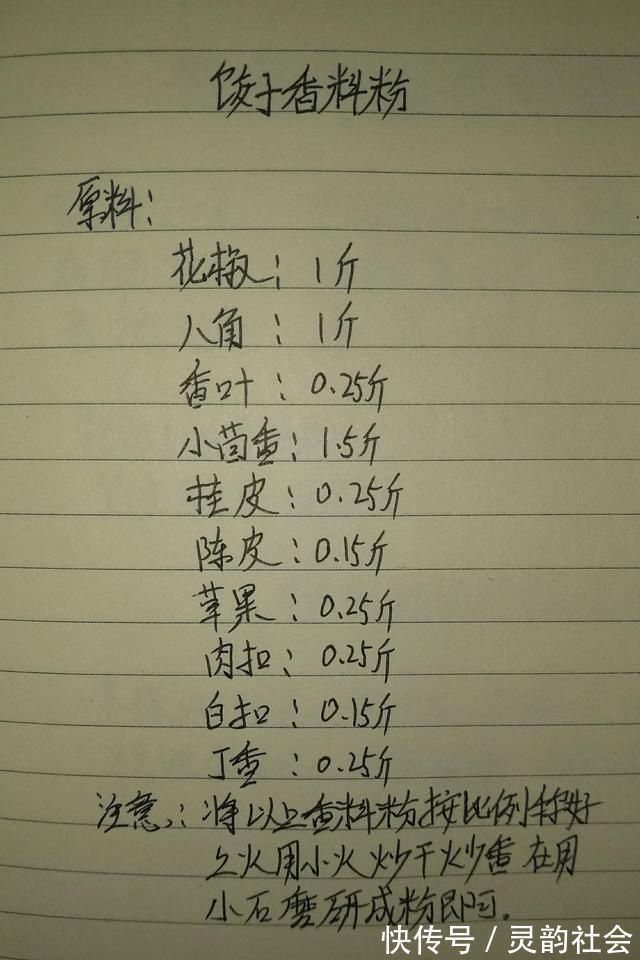 饺子香料粉
原料:
花椒: 1斤
八角: 1斤
香叶: 0.25斤
小茴香: 1.5斤
桂皮: 0.25斤
陈皮: 0.15斤
草果: 0.25斤
肉扣: 0.25斤
白扣: 0.15斤
丁香: 0.25斤
注意: 将以上香料粉按比例称好
上火用小火炒干炒香在用
小石磨研成粉即可.
快传号/灵韵社会